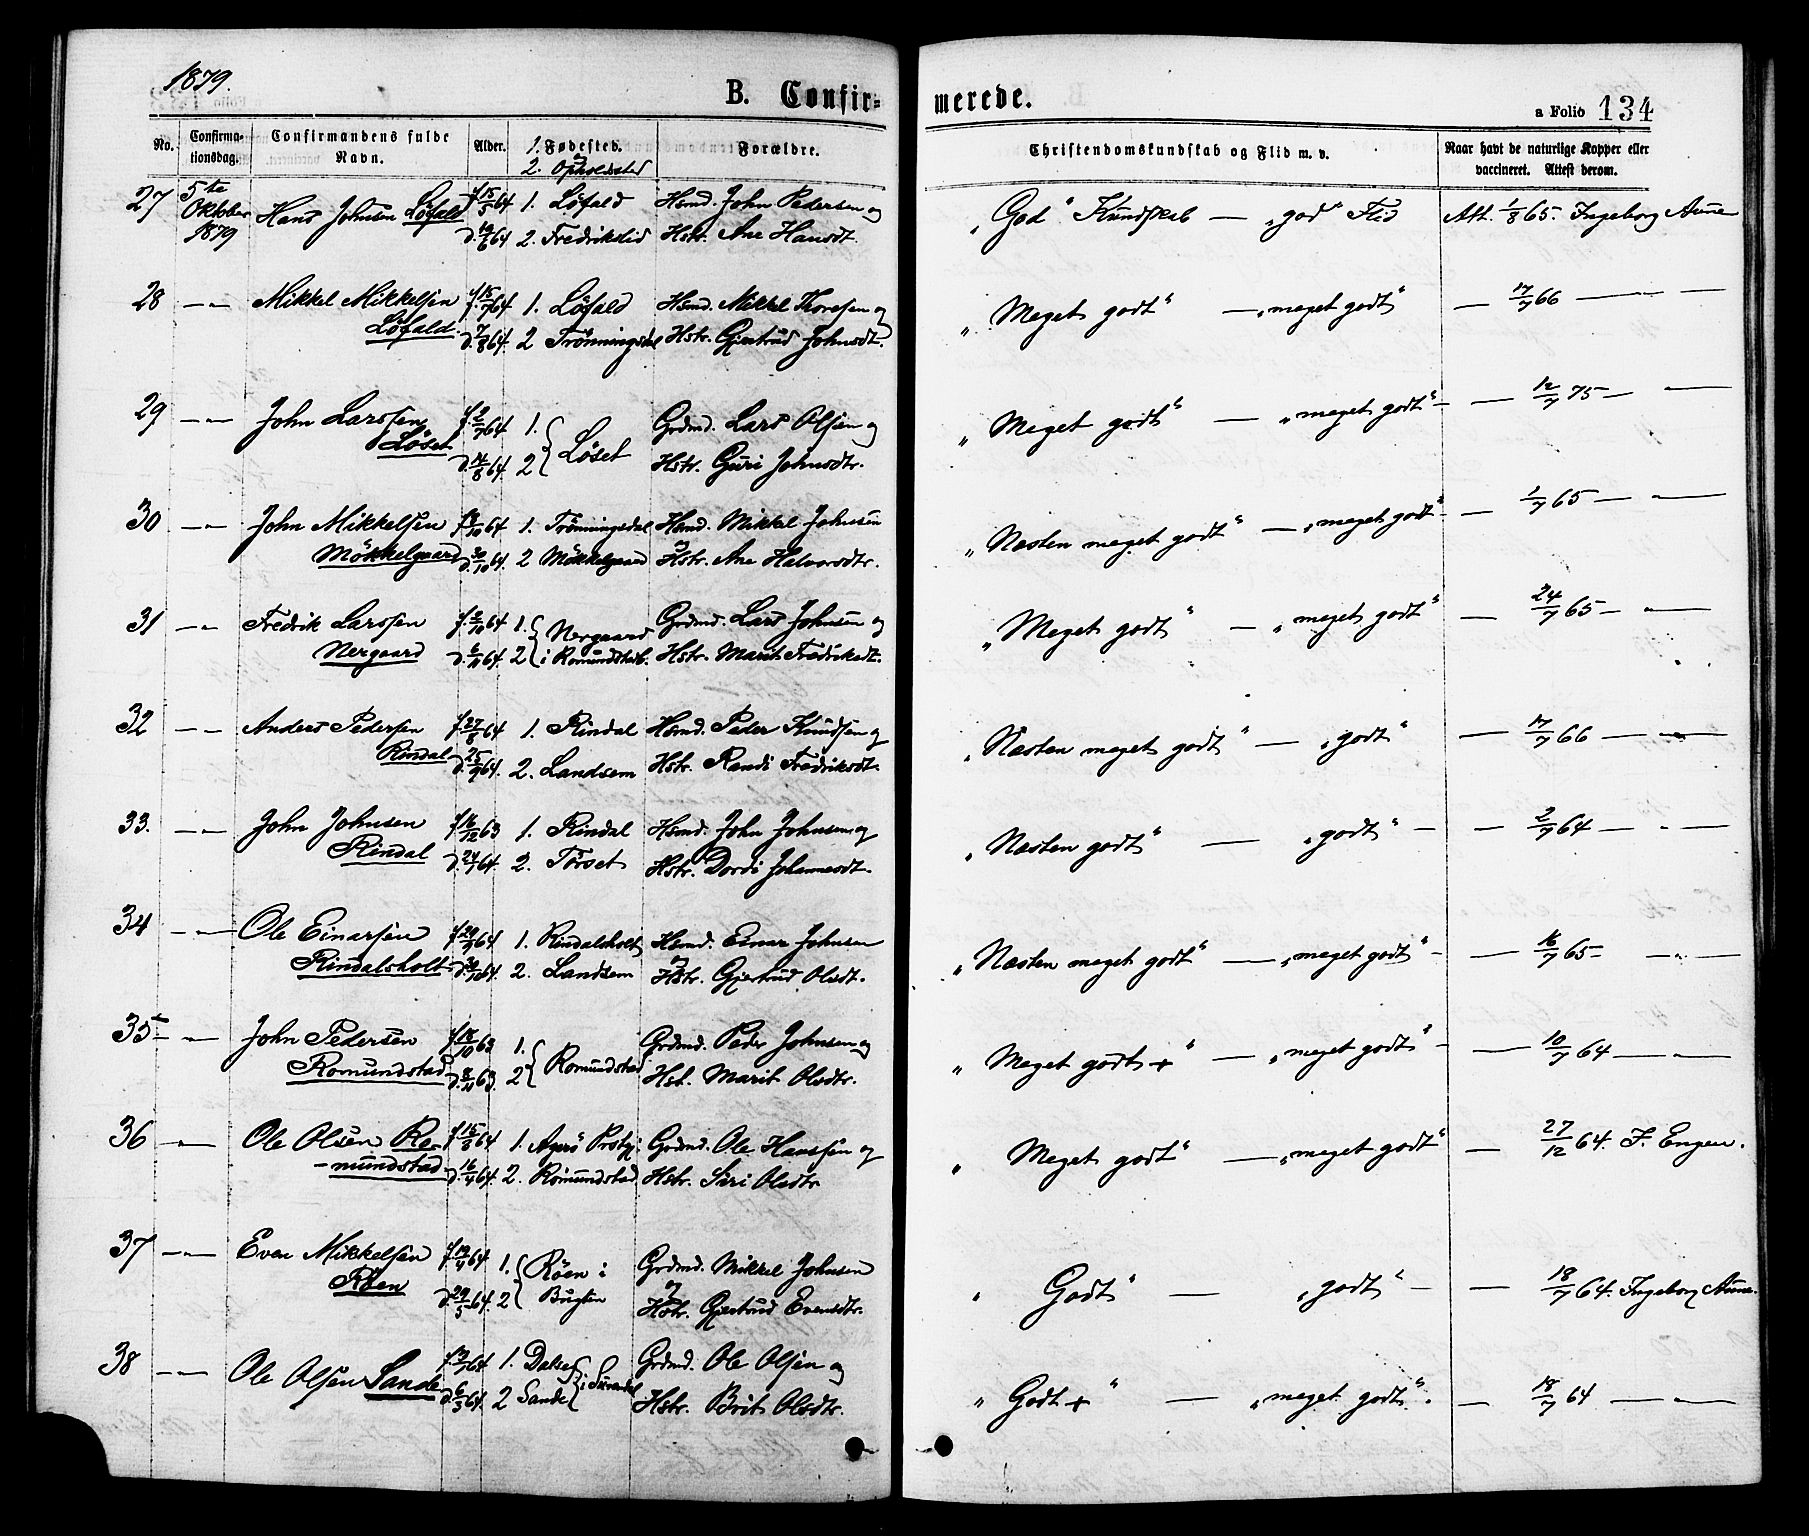 1879.
B. Confirmerede.
a Folio 134
No.
Confirmationsdag.
Confirmandens fulde Navn.
Alder.
1. Fødested.
og
2. Opholdssted
Forældre.
Christendomskundskab og Flid m. v.
Naar havt de naturlige Kopper eller vaccineret. Attest derom.
27 5te Oktober 1879 Hans Johnsen Löfald 1. Löfald Hsmd. John Pedersen og „God“ Kundskab — „god“ Flid Att. 1/8 65. Ingeborg Aune
2. Fredrikslid Hstr. Ane Hansdt.
28 — „ — Mikkel Mikkelsen 1. Löfald Hsmd. Mikkel Thoresen og „Meget godt“ — „meget godt“ — 17/7 66 — —
Löfald. d. 7/8 64. 2 Trönningsdal Hstr. Gjertrud Johnsdt.
29 — „ — John Larssen f. 2/7 64 1. Grdmd. Lars Olsen og „Meget godt“ — „meget godt“ — 12/7 75 — —
Löset d. 14/8 64. 2 Löset Hstr. Guri Johnsdtr.
30 — „ — John Mikkelsen 1. Trönningsdal Hsmd. Mikkel Johnsen „Næsten meget godt“ — „meget godt“ — 1/7 65 — —
Mökkelgaard d. 30/10 64. 2 Mökkelgaard og Hstr. Ane Halvorsdtr.
31 — „ — Fredrik Larssen 1. Nergaard Grdmd. Lars Johnsen og „Meget godt“ — „meget godt“ — 24/7 65 — „ —
Nergaard d. 6/11 64. 2 i Romundstadb. Hstr. Marit Fredriksdt.
32 — „ — Anders Pedersen f. 27/8 64 1. Rindal Hsmd. Peder Knudsen og „Næsten meget godt“ — „godt“ — 17/7 66 — „ —
Rindal d. 25/9 64. 2. Landsem Hstr. Randi Fredriksdt.
33. — „ — John Johnsen f. 16/12 63 1. Rindal Hsmd. John Johnsen og „Næsten godt“ — „godt“ — 2/7 64 — „ —
Rindal d. 24/1 64. 2. Törset Hstr. Dordi Johannesdt.
34 — „ — Ole Einarsen f. 29/9 64 1. Rindalsholt Hsmd. Einar Johnsen „Næsten meget godt“ — „meget godt“ — 16/7 65 — „ —
Rindalsholt d. 30/10 64. 2. Landsem og Hstr. Gjertrud Olsdt.
35 — „ — John Pedersen f. 18/10 63 1. Grdmd. Peder Johnsen og „Meget godt +“ — „meget godt“ — 10/7 64 — „ —
Romundstad d. 8/11 63. 2 Romundstad Hst. Marit Olsdtr.
36 — „ — Ole Olsen Ro- f. 15/3 64 1. Agerö Prstgj. Grdmd. Ole Hanssen og „Meget godt“ — „meget godt“ — 27/12 64. F. Engen.
-mundstad d. 16/4 64. 2. Romundstad Hstr. Siri Olsdtr
37 — „ — Even Mikkelsen f. 19/4 64 1. Röen i Grdmd. Mikkel Johnsen „Godt“ — „godt“ — 18/7 64. Ingeborg Aune.
Röen d. 29/5 64. 2 Bugten og Hstr. Gjertrud Evensdtr.
38 — „ — Ole Olsen Sande 1. Dalseg Grdmd. Ole Olsen og „Godt +“ — „meget godt“. — 18/7 64 — —
d. 6/3 64. 2 Sande i Surendal Hstr. Brit Olsdtr.